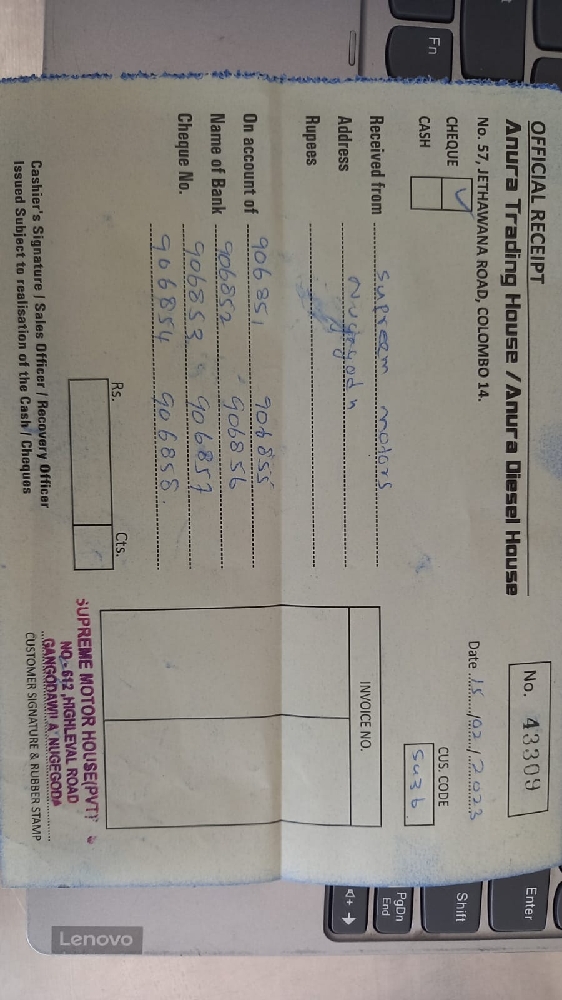 OFFICIAL RECEIPT
Anura Trading House / Anura Diesel House
No. 57, JETHAWANA ROAD, COLOMBO 14.
No. 43309
CHEQUE ✓
CASH
Date 15/02/2023
CUS. CODE
Su36
Received from supreem motors
Address Nugagoda
Rupees
INVOICE NO.
On account of 906851 906855
Name of Bank 906852 906856
Cheque No. 906853 906857
906854 906858
Rs. Cts.
SUPREME MOTOR HOUSE(PVT)
NO - 612 ,HIGHLEVAL ROAD
GANGODAWILA NUGEGODA
Cashier's Signature / Sales Officer / Recovery Officer
CUSTOMER SIGNATURE & RUBBER STAMP
Issued Subject to realisation of the Cash / Cheques
Fn
Enter
Shift
PgDn
End
Lenovo